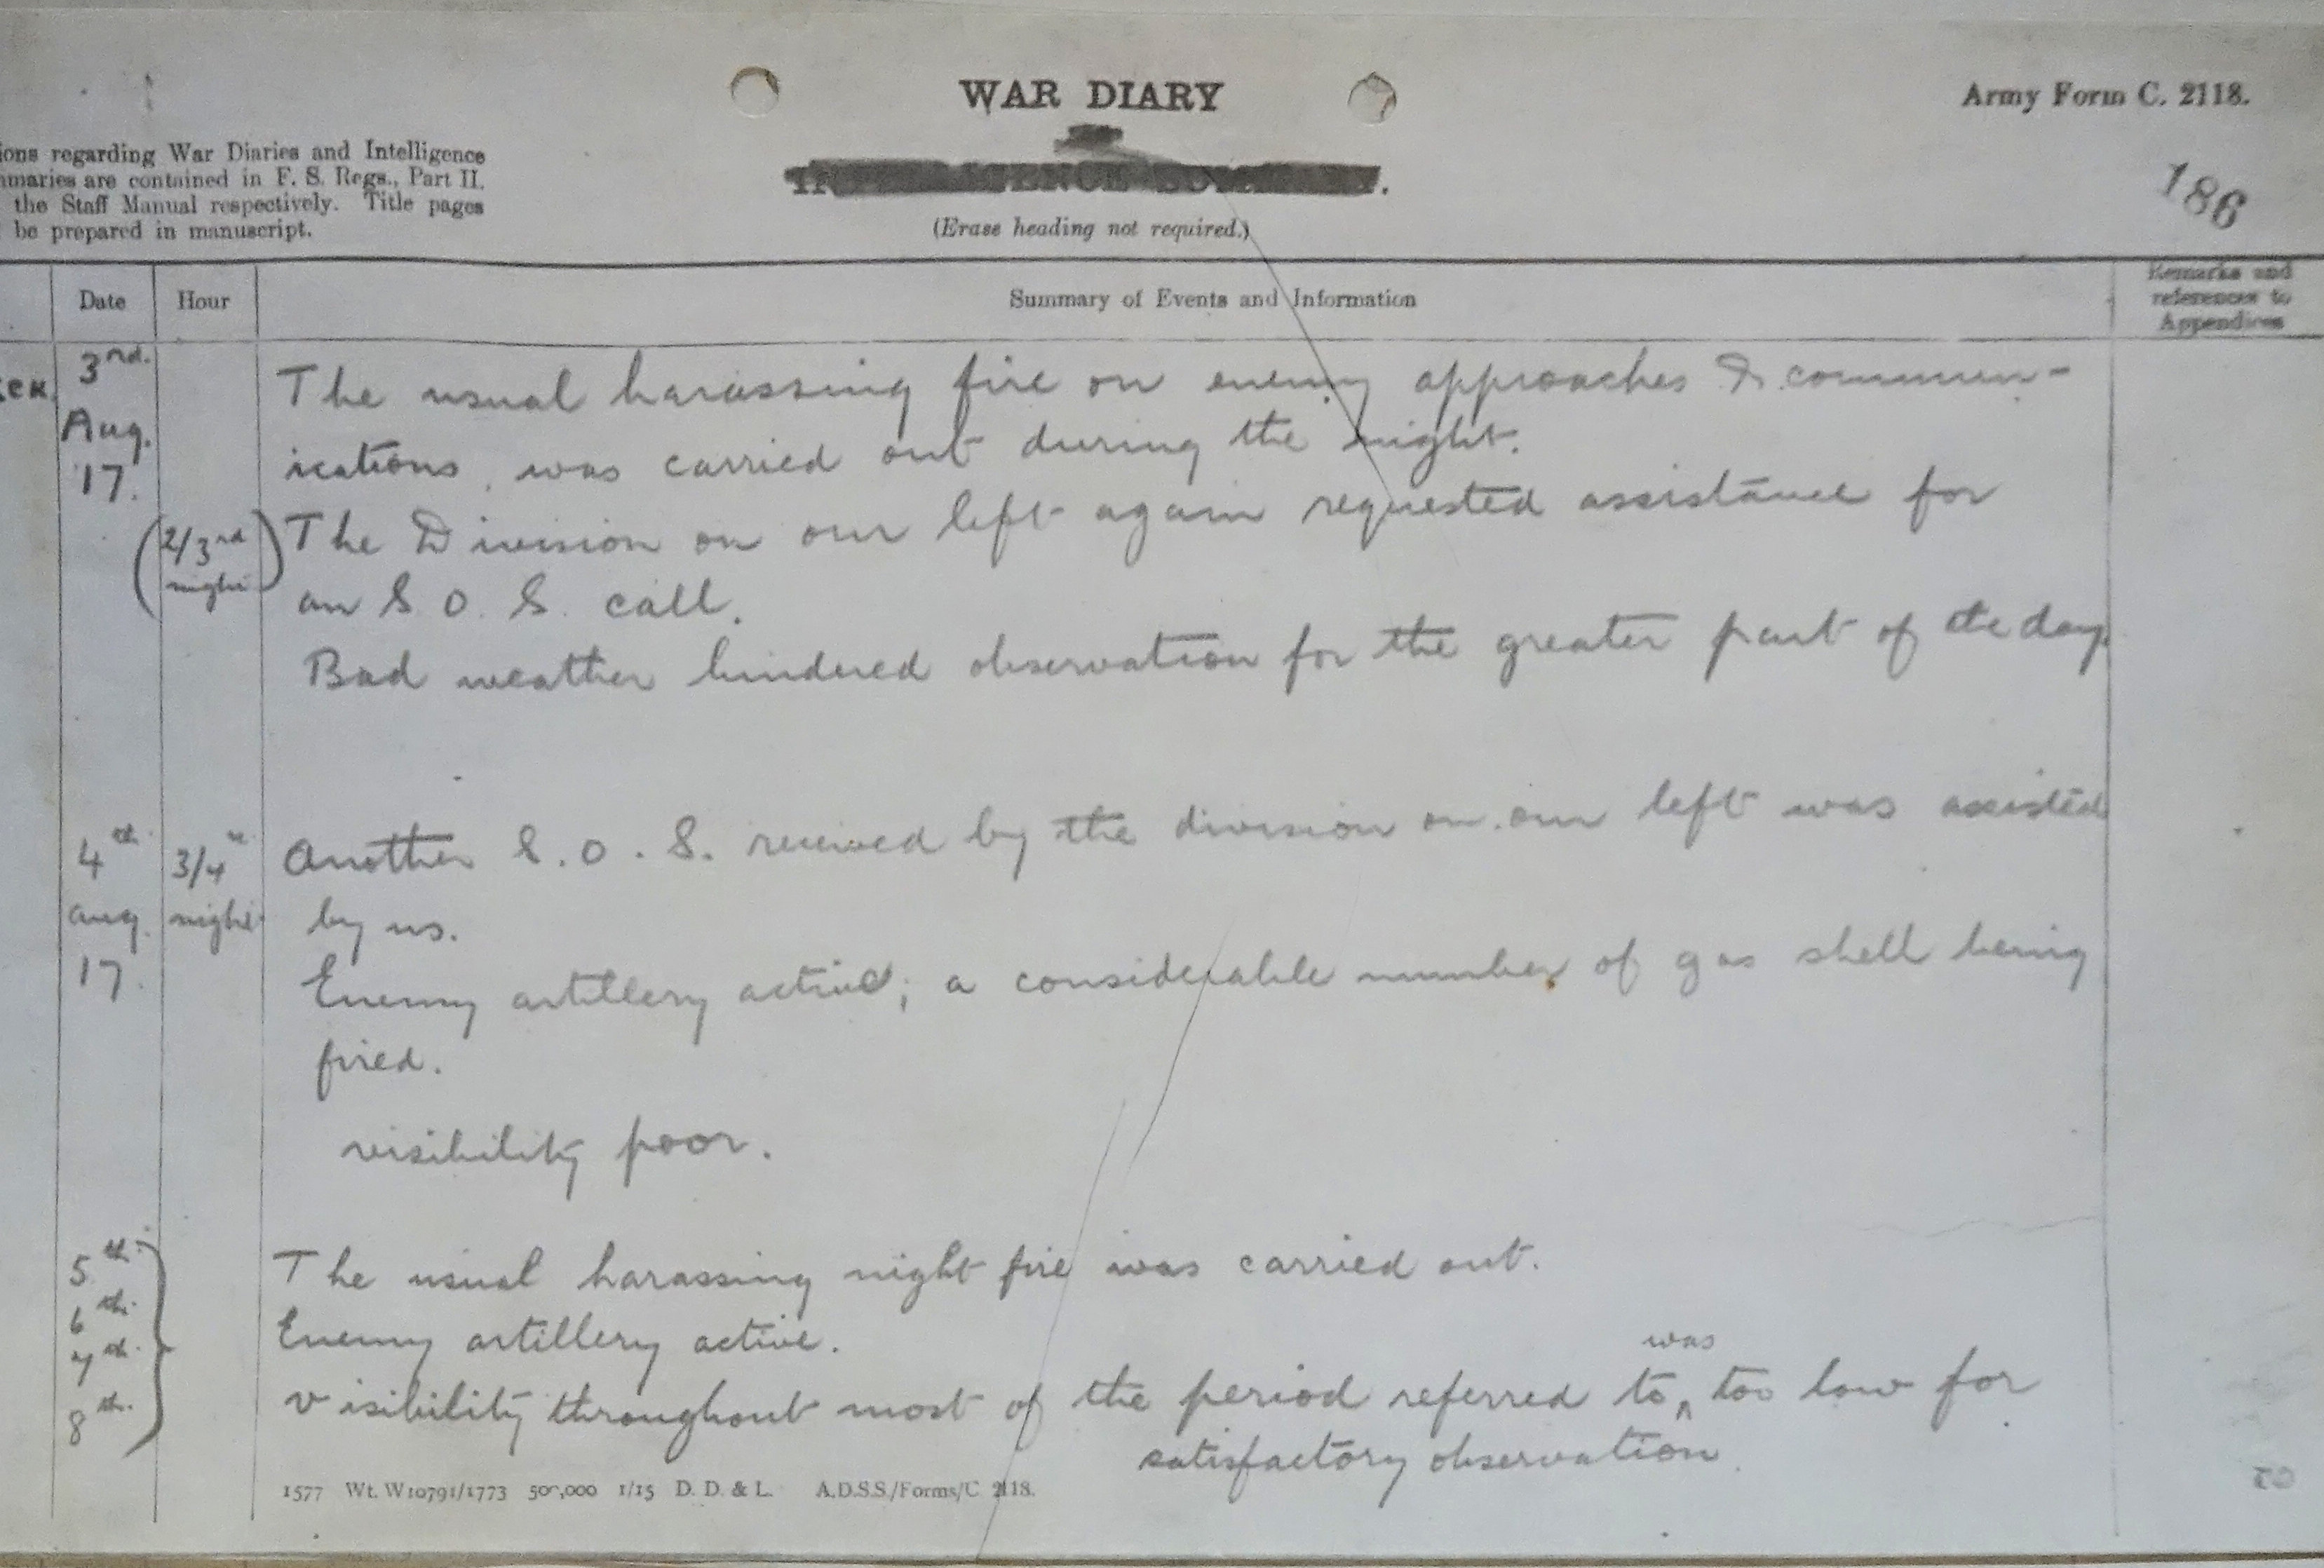 WAR DIARY
Army Form C. 2118.
ions regarding War Diaries and Intelligence
mmaries are contained in F. S. Regs., Part II.
the Staff Manual respectively. Title pages
be prepared in manuscript.
INTELLIGENCE SUMMARY.
(Erase heading not required.)
186
Date
Hour
Summary of Events and Information
Remarks and
references to
Appendices
3rd.
Aug.
17.
The usual harassing fire on enemy approaches & commun-
ications, was carried out during the night.
(2/3rd
night)
The Division on our left again requested assistance for
an S. O. S. call.
Bad weather hindered observation for the greater part of the day.
4th
Aug.
17.
3/4th
night
Another S. O. S. received by the division on our left was assisted
by us.
Enemy artillery active; a considerable number of gas shell being
fired.
visibility poor.
5th.
6th.
7th.
8th.
The usual harassing night fire was carried out.
Enemy artillery active.
was
visibility throughout most of the period referred to ^ too low for
satisfactory observation.
1577 Wt. W10791/1773 500,000 1/15 D. D. & L. A.D.S.S./Forms/C 2118.